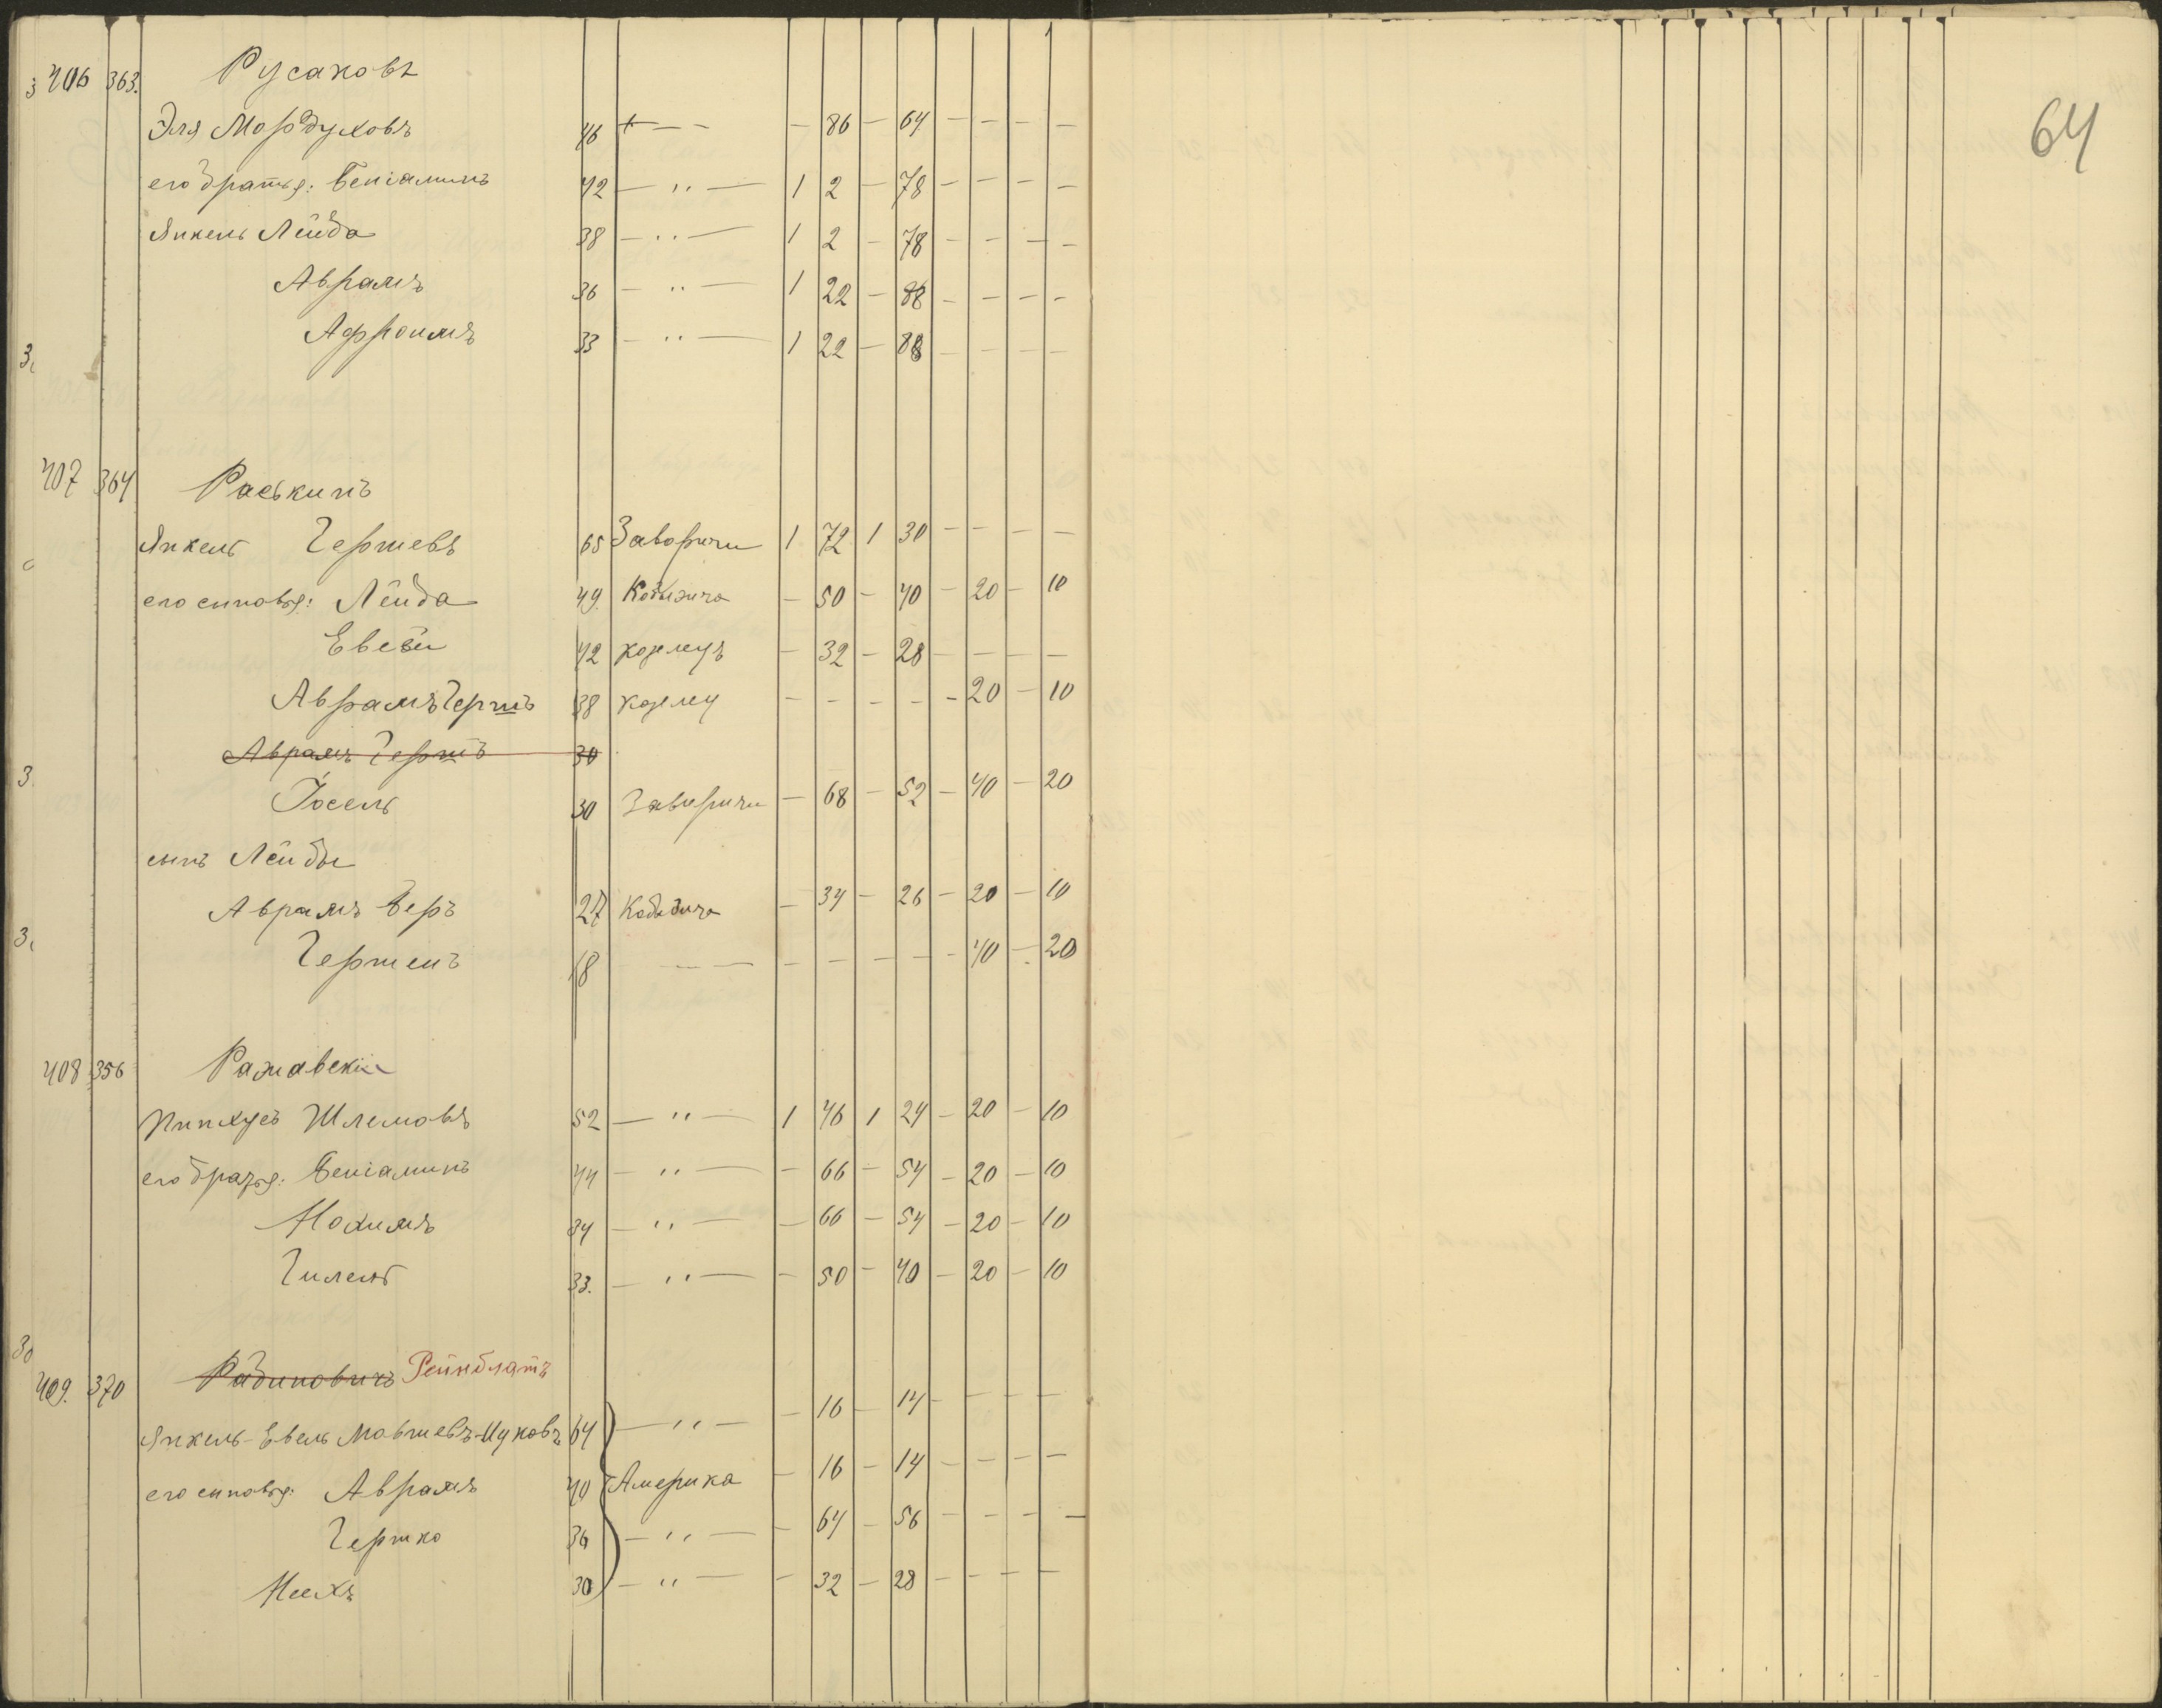 3 406 363. Русаковъ
Эля Мордуховъ 46 + — — — 86 — 64 — — — —
его братья: Беніаминъ 42 — " — 1 2 — 78 — — — —
Янкель Лейба 38 — " — 1 2 — 78 — — — —
Абрамъ 36 — " — 1 22 — 88 — — — —
Афроимъ 33 — " — 1 22 — 88 — — — —
3.
407 364 Раськинъ
Янкель Гершевъ 65 Заворичи 1 72 1 30 — — — —
его сыновья: Лейба 49. — 50 — 40 — 20 — 10
Евсей 42 — 32 — 28 — — — —
Абрамъ Гершъ 38 — — — — — 20 — 10
Абрамъ Гершъ 30
3. Іосель 30 Заворичи — 68 — 52 — 40 — 20
сынъ Лейбы
Абрамъ Беръ 27 — 34 — 26 — 20 — 10
3. Гершенъ 18 — — — — — — — 40 — 20
408 356 Ражавскій
Пинхусъ Шлемовъ 52 — " — 1 46 1 24 — 20 — 10
его братья: Беніаминъ 44 — " — — 66 — 54 — 20 — 10
Нохимъ 34 — " — — 66 — 54 — 20 — 10
Гилель 33. — " — — 50 — 40 — 20 — 10
409. 370 Рабиновичъ Рейнблатъ
Янкель-Евель Мовшевъ-Ицковъ 64 — " — — 16 — 14 — — — —
его сыновья: Абрамъ 40 Америка — 16 — 14 — — — —
Гершко 36 — " — — 64 — 56 — — — —
30 — " — — 32 — 28 — — — —
64